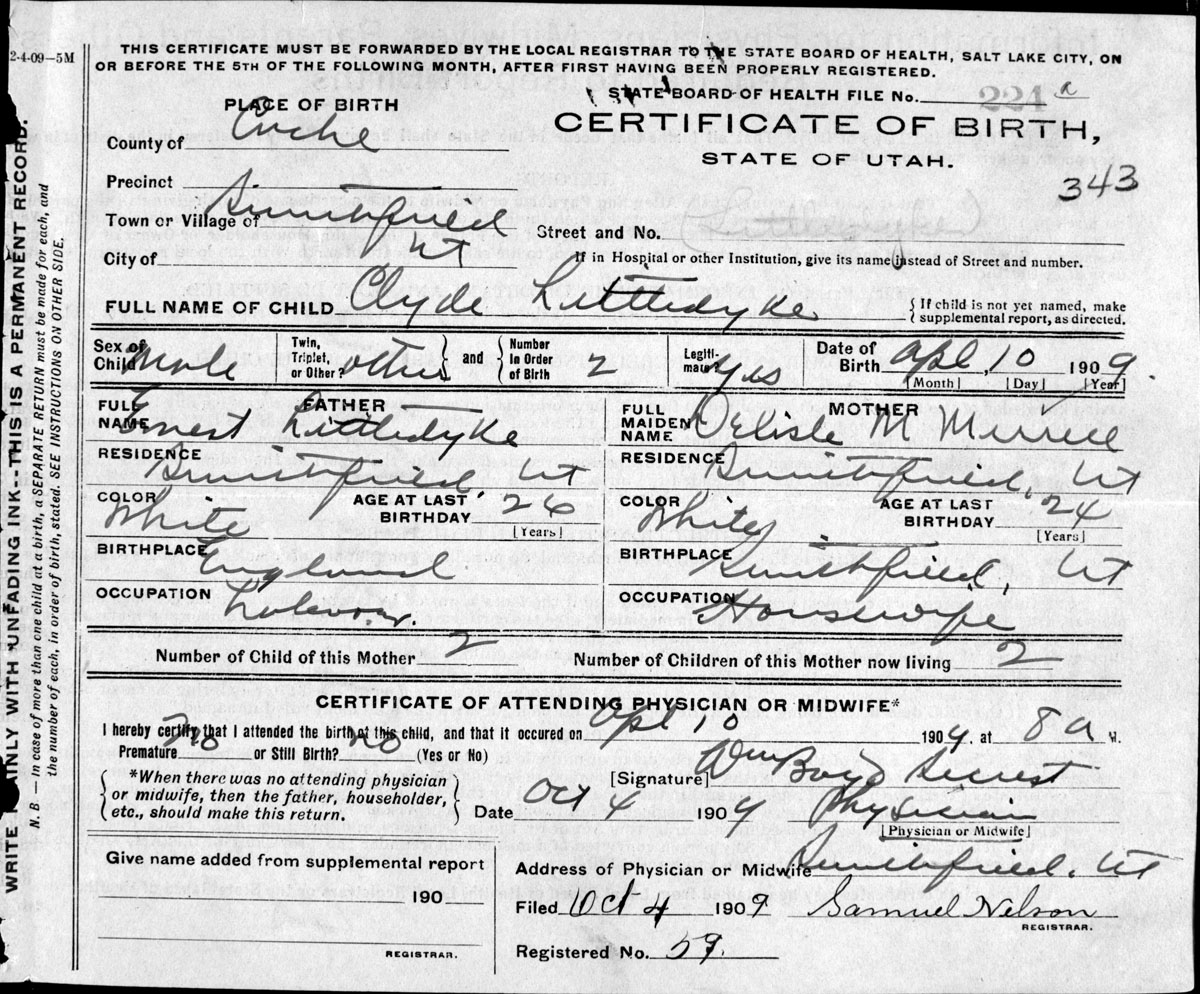 2-4-09-5M
THIS CERTIFICATE MUST BE FORWARDED BY THE LOCAL REGISTRAR TO THE STATE BOARD OF HEALTH, SALT LAKE CITY, ON
OR BEFORE THE 5TH OF THE FOLLOWING MONTH, AFTER FIRST HAVING BEEN PROPERLY REGISTERED.
STATE BOARD OF HEALTH FILE No. 224 a
PLACE OF BIRTH
CERTIFICATE OF BIRTH,
County of Cache
STATE OF UTAH.
343
Precinct
Town or Village of Smithfield
Street and No. Littledyke
City of Ut
If in Hospital or other Institution, give its name instead of Street and number.
FULL NAME OF CHILD Clyde Littledyke { If child is not yet named, make supplemental report, as directed.
Sex of Child Male Twin, Triplet, or Other? other and Number in Order of Birth 2 Legitimate? Yes Date of Birth Apl, 10 1909
[Month] [Day] [Year]
FATHER MOTHER
FULL NAME Ernest Littledyke FULL MAIDEN NAME Delisle M Merrell
RESIDENCE Smithfield, Ut RESIDENCE Smithfield, Ut
COLOR White AGE AT LAST BIRTHDAY 26 [Years] COLOR White AGE AT LAST BIRTHDAY 24 [Years]
BIRTHPLACE England BIRTHPLACE Smithfield, Ut
OCCUPATION Laborer. OCCUPATION Housewife
Number of Child of this Mother 2 Number of Children of this Mother now living 2
CERTIFICATE OF ATTENDING PHYSICIAN OR MIDWIFE*
I hereby certify that I attended the birth of this child, and that it occured on Apl 10 1909, at 8 a M.
Premature No or Still Birth? No (Yes or No)
{ *When there was no attending physician or midwife, then the father, householder, etc., should make this return. }
[Signature] Wm Boyd Secrest
Date Oct 4 1909 Physician
[Physician or Midwife]
Give name added from supplemental report
190
REGISTRAR.
Address of Physician or Midwife Smithfield, Ut
Filed Oct 4 1909 Samuel Nelson
REGISTRAR.
Registered No. 59.
WRITE PLAINLY WITH UNFADING INK--THIS IS A PERMANENT RECORD.
N. B. — In case of more than one child at a birth, a SEPARATE RETURN must be made for each, and
the number of each, in order of birth, stated. SEE INSTRUCTIONS ON OTHER SIDE.